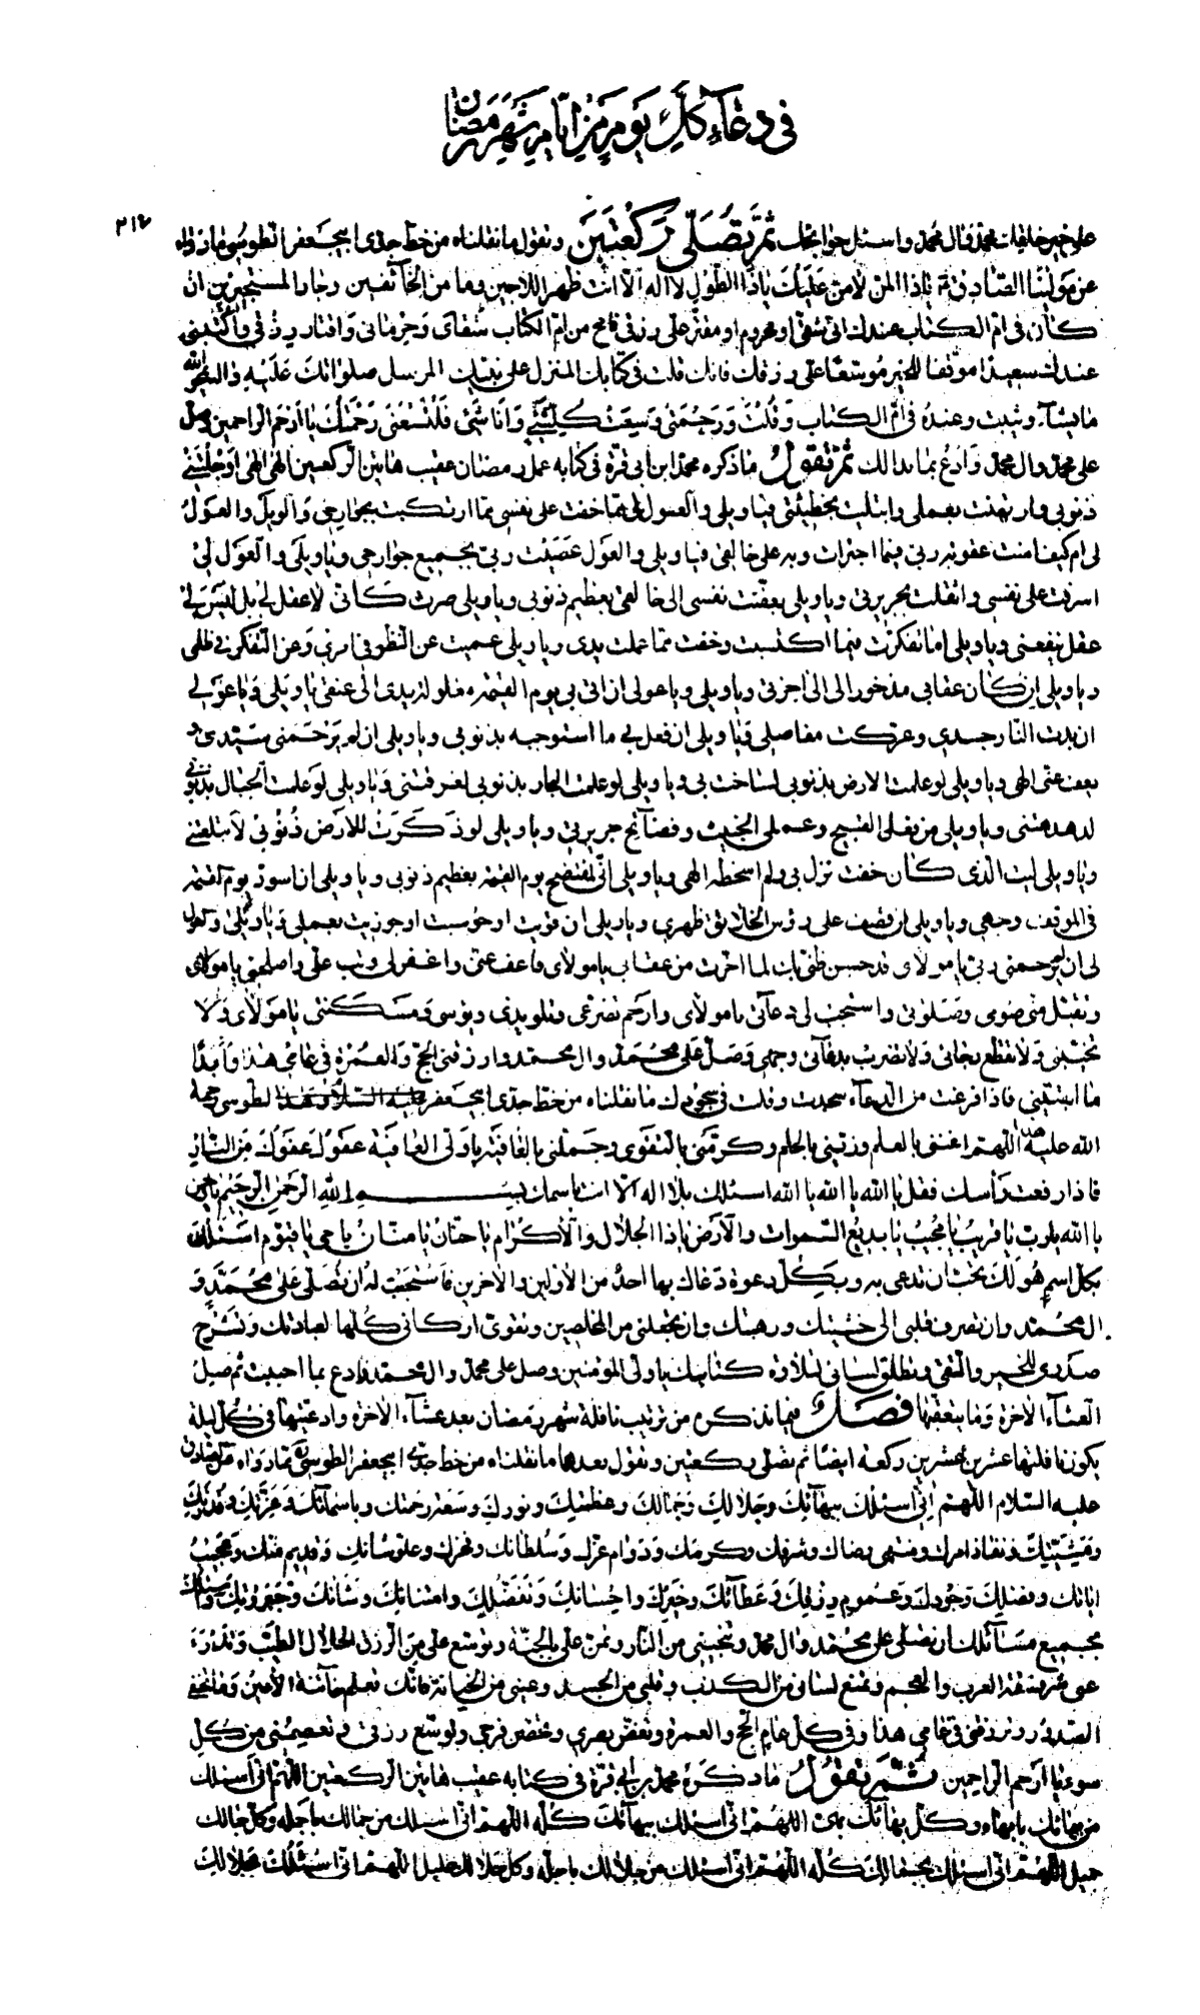 في دعاء كل يوم من ايام شهر رمضان
٢١٤
على خير خلقك محمد وال محمد واسئل حوائجك ثم تصلى ركعتين وتقول ما نقلناه من خط جدى ابيجعفر الطوسى مما رواه
عن مولينا الصادق ع يا ذا المن لا من عليك يا ذا الطول لا اله الا انت ظهر اللاجين ومامن الخائفين وجار المستجيرين ان
كان في ام الكتاب عندك انى شقى او محروم او مقتر على رزقى فامح من ام الكتاب شقائى وحرمانى واقتار رزقى واكتبنى
عندك سعيدا موفقا للخير موسعا على رزقك فانك قلت في كتابك المنزل على نبيك المرسل صلواتك عليه واله يمحو الله
ما يشاء ويثبت وعنده ام الكتاب وقلت ورحمتى وسعت كل شئ وانا شئ فلتسعنى رحمتك يا ارحم الراحمين وصل
على محمد وال محمد وادع بما بدا لك ثم تقول ما ذكره محمد ابن ابى قرة في كتابه عمل رمضان عقيب هاتين الركعتين الهى الهى اوجلتنى
ذنوبى وارتهنت بعملى وابتليت بخطيئتى فيا ويلى والعول لى مما خفت على نفسى مما ارتكبت بجوارحى والويل والعول
لى ام كيف امنت عقوبة ربى فيما اجترات به على خالقى فيا ويلى والعول عصيت ربى بجميع جوارحى ويا ويلى والعول لى
اسرفت على نفسى واثقلت بجريرتى ويا ويلى بغضت نفسى الى خالقى بعظيم ذنوبى ويا ويلى صرت كانى لا عقل لى بل ليس لى
عقل ينفعنى ويا ويلى اما تفكرت فيما اكتسبت وخفت مما عملت يدى ويا ويلى عميت عن النظر في امرى وعن التفكر في ظلمى
ويا ويلى ان كان عقابى مذخورا لى الى اخرتى ويا ويلى ويا عولى ان اتى بى يوم القيمة مغلولة يدى الى عنقى يا ويلى ويا عولى
ان بدت النار جسدى وعركت مفاصلى فيا ويلى ان فعل بى ما استوجبه بذنوبى ويا ويلى ان لم يرحمنى سيدى و
يعف عنى الهى ويا ويلى لو علمت الارض بذنوبى لساخت بى ويا ويلى لو علمت البحار بذنوبى لغرقتنى ويا ويلى لو علمت الجبال بذنوبى
لدهدهتنى ويا ويلى من فعلى القبيح وعملى الخبيث وفضائح جريرتى ويا ويلى لو ذكرت للارض ذنوبى لابتلعتنى
ويا ويلى ليت الذى كان خفت نزل بى ولم اسخط الهى ويا ويلى انى لمفتضح يوم القيمة بعظيم ذنوبى ويا ويلى ان اسود يوم القيمة
في الموقف وجهى ويا ويلى ان قصف على رؤس الخلائق ظهرى ويا ويلى ان قويست او حوسبت او جوزيت بعملى ويا ويلى والعول
لى ان لم يرحمنى ربى يا مولاى قد حسن ظنى بك لما اخرت من عقابى يا مولاى فاعف عنى واغفر لى وتب على واصلحنى يا مولاى
وتقبل منى صومى وصلوتى واستجب لى دعائى يا مولاى وارحم تضرعى وتلويذى وبؤسى ومسكنتى يا مولاى ولا
تخيبنى ولا تقطع رجائى ولا تضرب بدعائى وجهى وصل على محمد وال محمد وارزقنى الحج والعمرة في عامى هذا وابدا
ما ابقيتنى فاذا فرغت من الدعاء سجدت وقلت في سجودك ما نقلناه من خط جدى ابيجعفر الطوسى رحمة
الله عليه اللهم اغننى بالعلم وزينى بالحلم وكرمنى بالتقوى وجملنى بالعافية يا ولى العافية عفوك عفوك من النار
فاذا رفعت راسك فقل يا الله يا الله يا الله اسئلك بلا اله الا انت باسمك بسم الله الرحمن الرحيم يا رحمن
يا الله يا رب يا قريب يا مجيب يا بديع السموات والارض يا ذا الجلال والاكرام يا حنان يا منان يا حى يا قيوم اسئلك
بكل اسم هو لك يحب ان تدعى به وبكل دعوة دعاك بها احد من الاولين والاخرين فاستجبت له ان تصلى على محمد و
ال محمد وان تصرف قلبى الى خشيتك ورهبتك وان تجعلنى من المخلصين وتقوى اركانى كلها لعبادتك وتشرح
صدرى للخير والتقى وتطلق لسانى لتلاوة كتابك يا ولى المؤمنين وصل على محمد وال محمد وادع بما احببت ثم صل
العشاء الاخرة وما يتعقبها فصل فيما نذكره من ترتيب نافلة شهر رمضان بعد عشاء الاخرة وادعيتها في كل ليلة
يكون نافلتها عشرين ركعة ايضا ثم تصلى ركعتين وتقول بعدهما ما نقلناه من خط جدى ابيجعفر الطوسى مما رواه عن الصادق
عليه السلام اللهم انى اسئلك ببهائك وجلالك وجمالك وعظمتك ونورك وسعة رحمتك وباسمائك وعزتك وقدرتك
ومشيتك ونفاذ امرك ومنتهى رضاك وشرفك وكرمك ودوام عزك وسلطانك وفخرك وعلو شانك وقديم منك وعجيب
اياتك وفضلك وجودك وعموم رزقك وعطائك وخيرك واحسانك وتفضلك وامتنانك وشانك وجبروتك واسئلك
بجميع مسائلك ان تصلى على محمد وال محمد وتنجينى من النار وتمن على بالجنة وتوسع على من الرزق الحلال الطيب وتدرء
عنى شر فسقة العرب والعجم وتمنع لسانى من الكذب وقلبى من الحسد وعينى من الخيانة فانك تعلم خائنة الاعين وما تخفى
الصدور وترزقنى في عامى هذا وفي كل عام الحج والعمرة وتغض بصرى وتحصن فرجى وتوسع رزقى وتعصمنى من كل
سوء يا ارحم الراحمين ثم تقول ما ذكره محمد بن ابى قرة في كتابه عقيب هاتين الركعتين اللهم انى اسئلك
من بهائك بابهاه وكل بهائك بهى اللهم انى اسئلك ببهائك كله اللهم انى اسئلك من جمالك باجمله وكل جمالك
جميل اللهم انى اسئلك بجمالك كله اللهم انى اسئلك من جلالك باجله وكل جلالك جليل اللهم انى اسئلك بجلالك